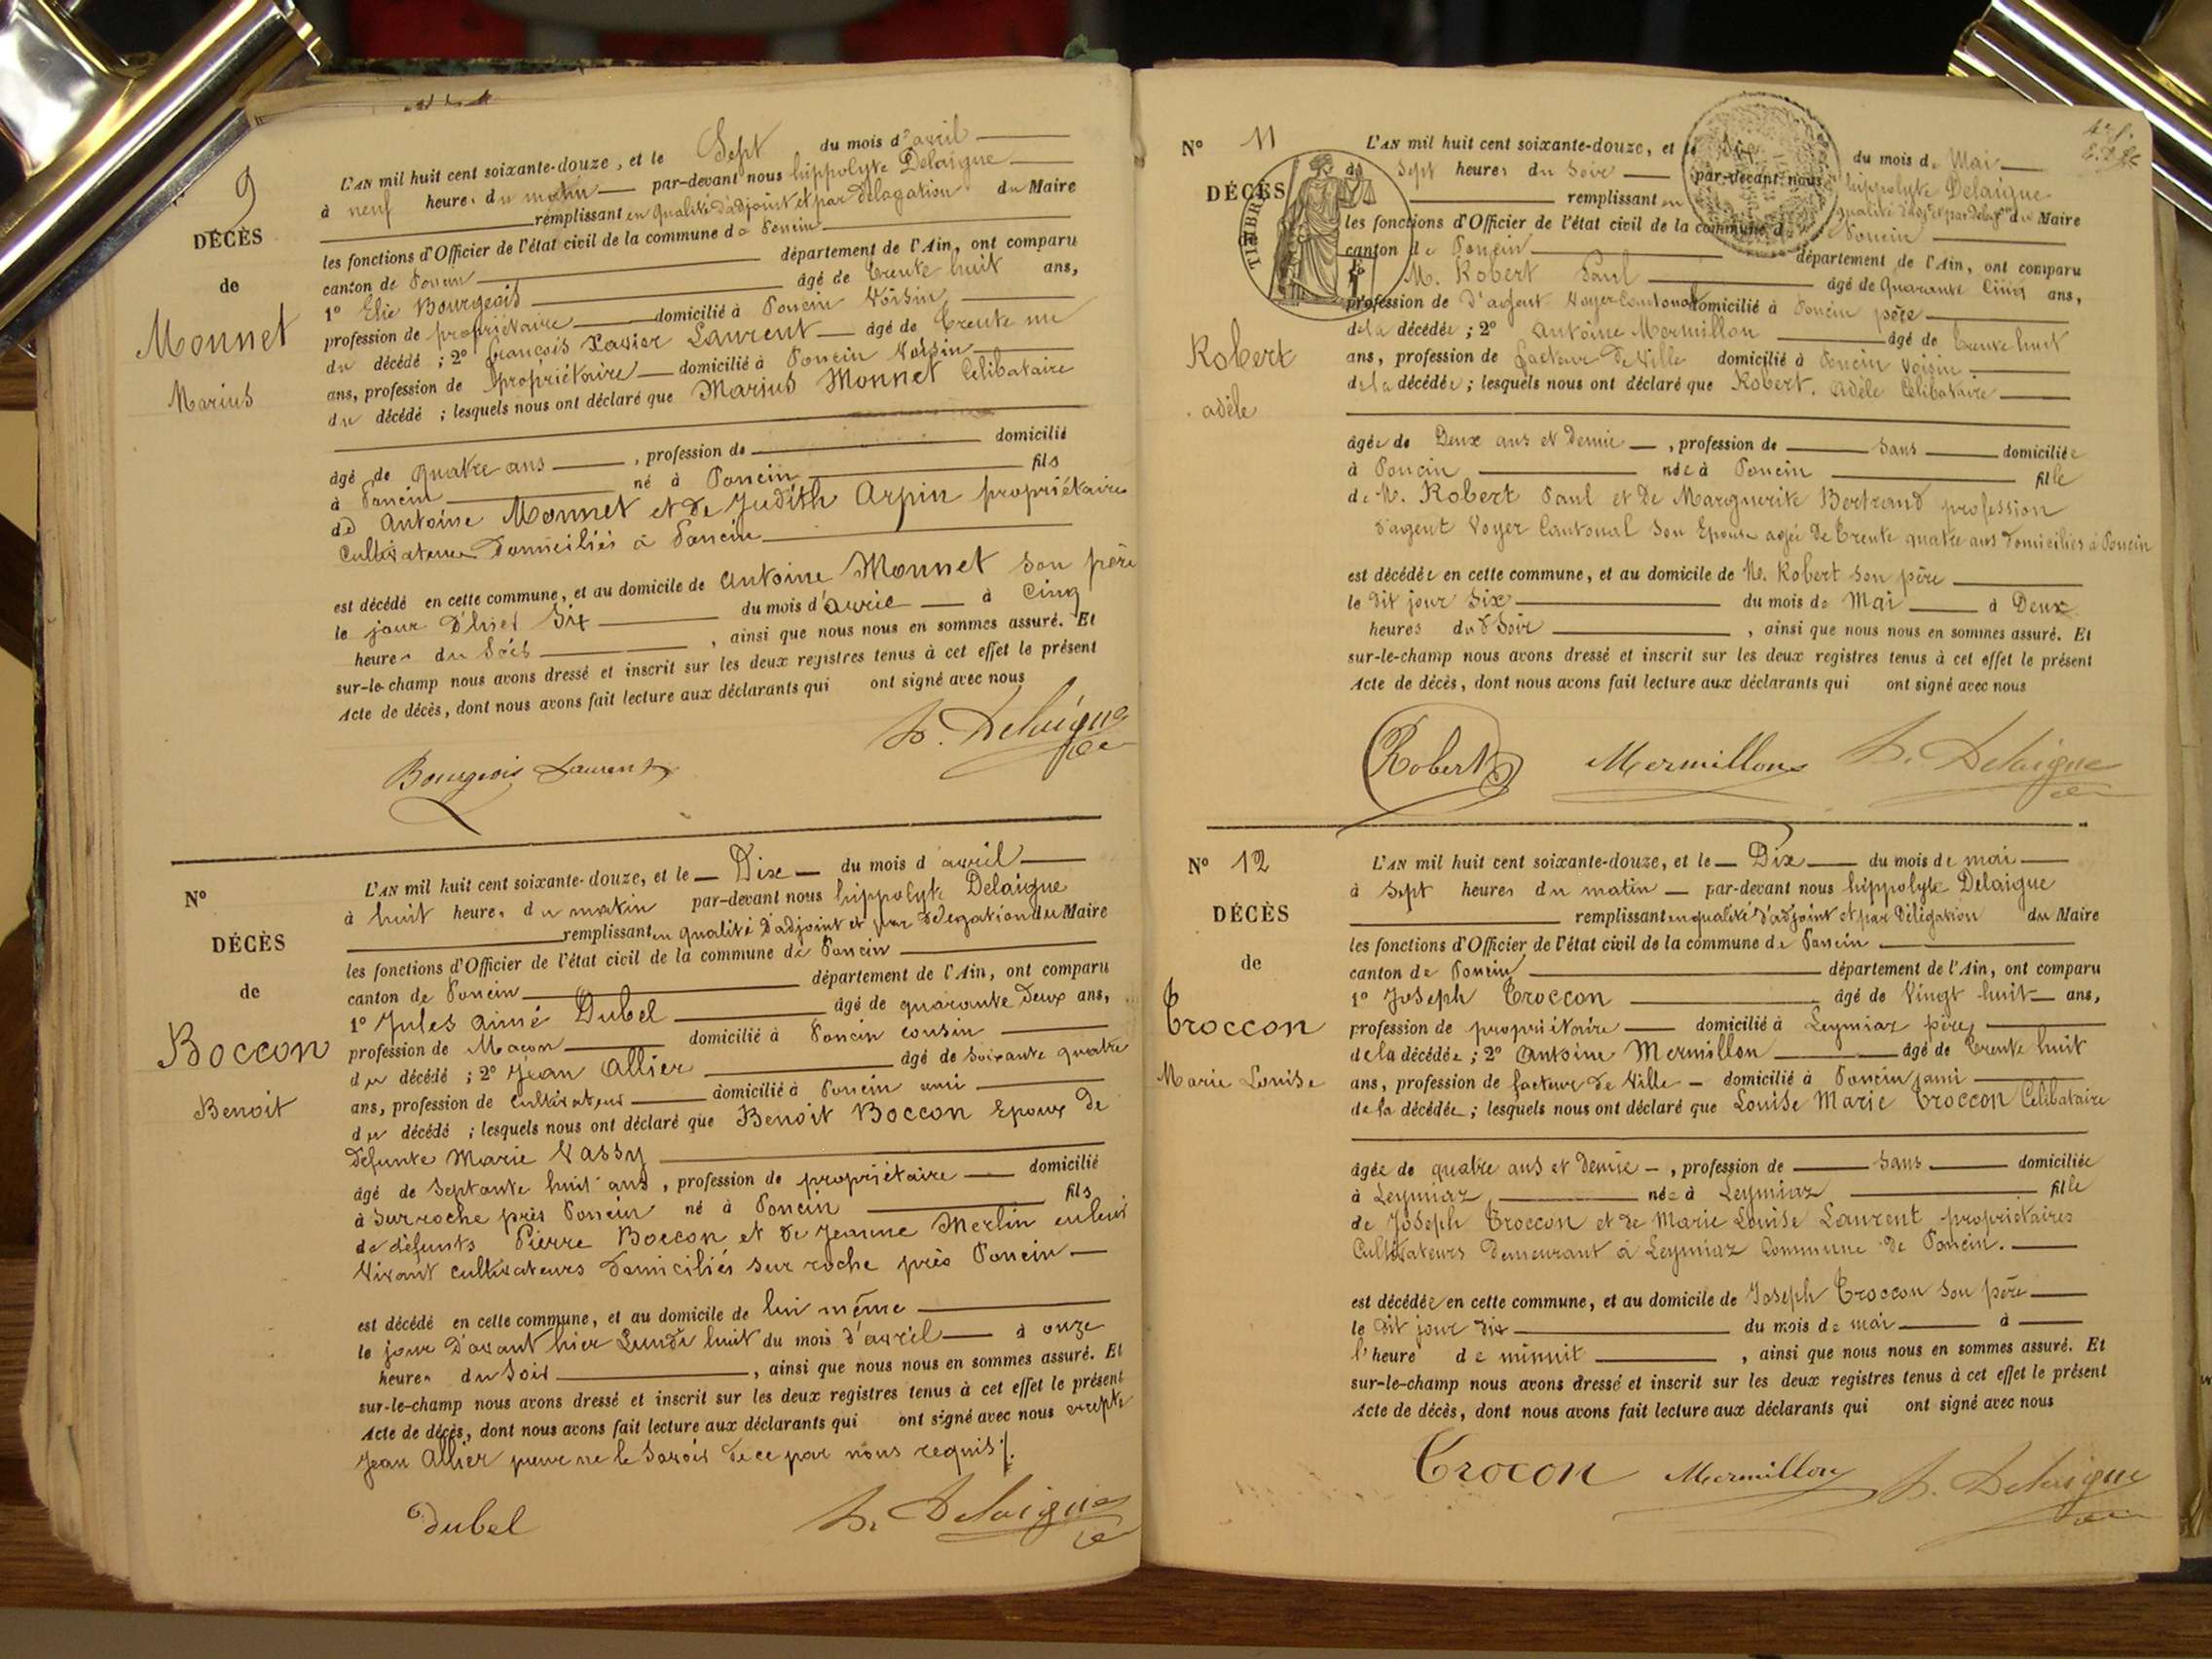 9
DÉCÈS
de
Monnet
Marius
L'AN mil huit cent soixante-douze, et le Sept du mois d'avril
à neuf heures du matin par-devant nous hippolyte Delaigue
remplissant en qualité d'adjoint et par délagation du Maire
les fonctions d'Officier de l'état civil de la commune de Poncin
canton de Poncin département de l'Ain, ont comparu
1° Elie Bourgeois âgé de trente huit ans,
profession de propriétaire domicilié à Poncin Voisin
du décédé ; 2° François Xavier Laurent âgé de trente un
ans, profession de propriétaire domicilié à Poncin Voisin
du décédé ; lesquels nous ont déclaré que Marius Monnet Célibataire
âgé de quatre ans , profession de domicilié
à Poncin né à Poncin fils
de Antoine Monnet et de Judith Arpin propriétaires
Cultivateurs Domiciliés à Poncin
est décédé en cette commune, et au domicile de Antoine Monnet son père
le jour d'hier Six du mois d'avril à Cinq
heures du Soir , ainsi que nous nous en sommes assuré. Et
sur-le-champ nous avons dressé et inscrit sur les deux registres tenus à cet effet le présent
Acte de décès, dont nous avons fait lecture aux déclarants qui ont signé avec nous
Bourgeois Laurent h. Delaigue
N°
DÉCÈS
de
Boccon
Benoit
L'AN mil huit cent soixante-douze, et le Dix du mois d'avril
à huit heures du matin par-devant nous hippolyte Delaigue
remplissant en qualité d'adjoint et par délégation du Maire
les fonctions d'Officier de l'état civil de la commune de Poncin
canton de Poncin département de l'Ain, ont comparu
1° Jules aimé Dubel âgé de quarante Deux ans,
profession de Maçon domicilié à Poncin cousin
du décédé ; 2° Jean Allier âgé de Soixante quatre
ans, profession de Cultivateur domicilié à Poncin ami
du décédé ; lesquels nous ont déclaré que Benoit Boccon Epoux de
défunte Marie Vassy
âgé de Septante huit ans , profession de propriétaire domicilié
à Surroche près Poncin né à Poncin fils
de défunts Pierre Boccon et de Jeanne Merlin en leur
Vivant cultivateurs domiciliés sur roche près Poncin
est décédé en cette commune, et au domicile de lui même
le jour D'avant hier Lundi huit du mois d'avril à onze
heures du Soir , ainsi que nous nous en sommes assuré. Et
sur-le-champ nous avons dressé et inscrit sur les deux registres tenus à cet effet le présent
Acte de décès, dont nous avons fait lecture aux déclarants qui ont signé avec nous excepté
Jean Allier pour ne le Savoir de ce par nous requis
Dubel h. Delaigue
N° 11
DÉCÈS
TIMBRE
Robert
adèle
L'AN mil huit cent soixante-douze, et le du mois de Mai
Sept heures du Soir par-devant nous hippolyte Delaigue
remplissant en qualité d'adjt et par délégon du Maire
les fonctions d'Officier de l'état civil de la commune de Poncin
canton de Poncin département de l'Ain, ont comparu
M. Robert Paul âgé de quarante Cinq ans,
profession de d'agent Voyer Cantonal domicilié à Poncin père
de la décédée ; 2° Antoine Mermillon âgé de trente huit
ans, profession de facteur de Ville domicilié à Poncin Voisin
de la décédée ; lesquels nous ont déclaré que Robert. Adèle Célibataire
âgée de Deux ans et Demie , profession de Sans domiciliée
à Poncin née à Poncin fille
de M. Robert Paul et de Marguerite Bertrand profession
d'agent Voyer Cantonal Son Epouse agée de trente quatre ans Domiciliés à Poncin
est décédée en cette commune, et au domicile de M. Robert son père
le dit jour Six du mois de Mai à Deux
heures du Soir , ainsi que nous nous en sommes assuré. Et
sur-le-champ nous avons dressé et inscrit sur les deux registres tenus à cet effet le présent
Acte de décès, dont nous avons fait lecture aux déclarants qui ont signé avec nous
Robert Mermillon h. Delaigue
N° 12
DÉCÈS
de
Troccon
Marie Louise
L'AN mil huit cent soixante-douze, et le Dix du mois de mai
à Sept heures du matin par-devant nous hippolyte Delaigue
remplissant en qualité d'adjoint et par Délégation du Maire
les fonctions d'Officier de l'état civil de la commune de Poncin
canton de Poncin département de l'Ain, ont comparu
1° Joseph Troccon âgé de Vingt huit ans,
profession de propriétaire domicilié à Leymiaz père
de la décédée ; 2° Antoine Mermillon âgé de trente huit
ans, profession de facteur de Ville domicilié à Poncin ami
de la décédée ; lesquels nous ont déclaré que Louise Marie Troccon Célibataire
âgée de quatre ans et demie , profession de Sans domiciliée
à Leymiaz née à Leymiaz fille
de Joseph Troccon et de Marie Louise Laurent propriétaires
Cultivateurs Demeurant à Leymiaz Commune de Poncin.
est décédée en cette commune, et au domicile de Joseph Troccon son père
le dit jour dix du mois de mai à
l'heure de minuit , ainsi que nous nous en sommes assuré. Et
sur-le-champ nous avons dressé et inscrit sur les deux registres tenus à cet effet le présent
Acte de décès, dont nous avons fait lecture aux déclarants qui ont signé avec nous
Trocon Mermillon h. Delaigue